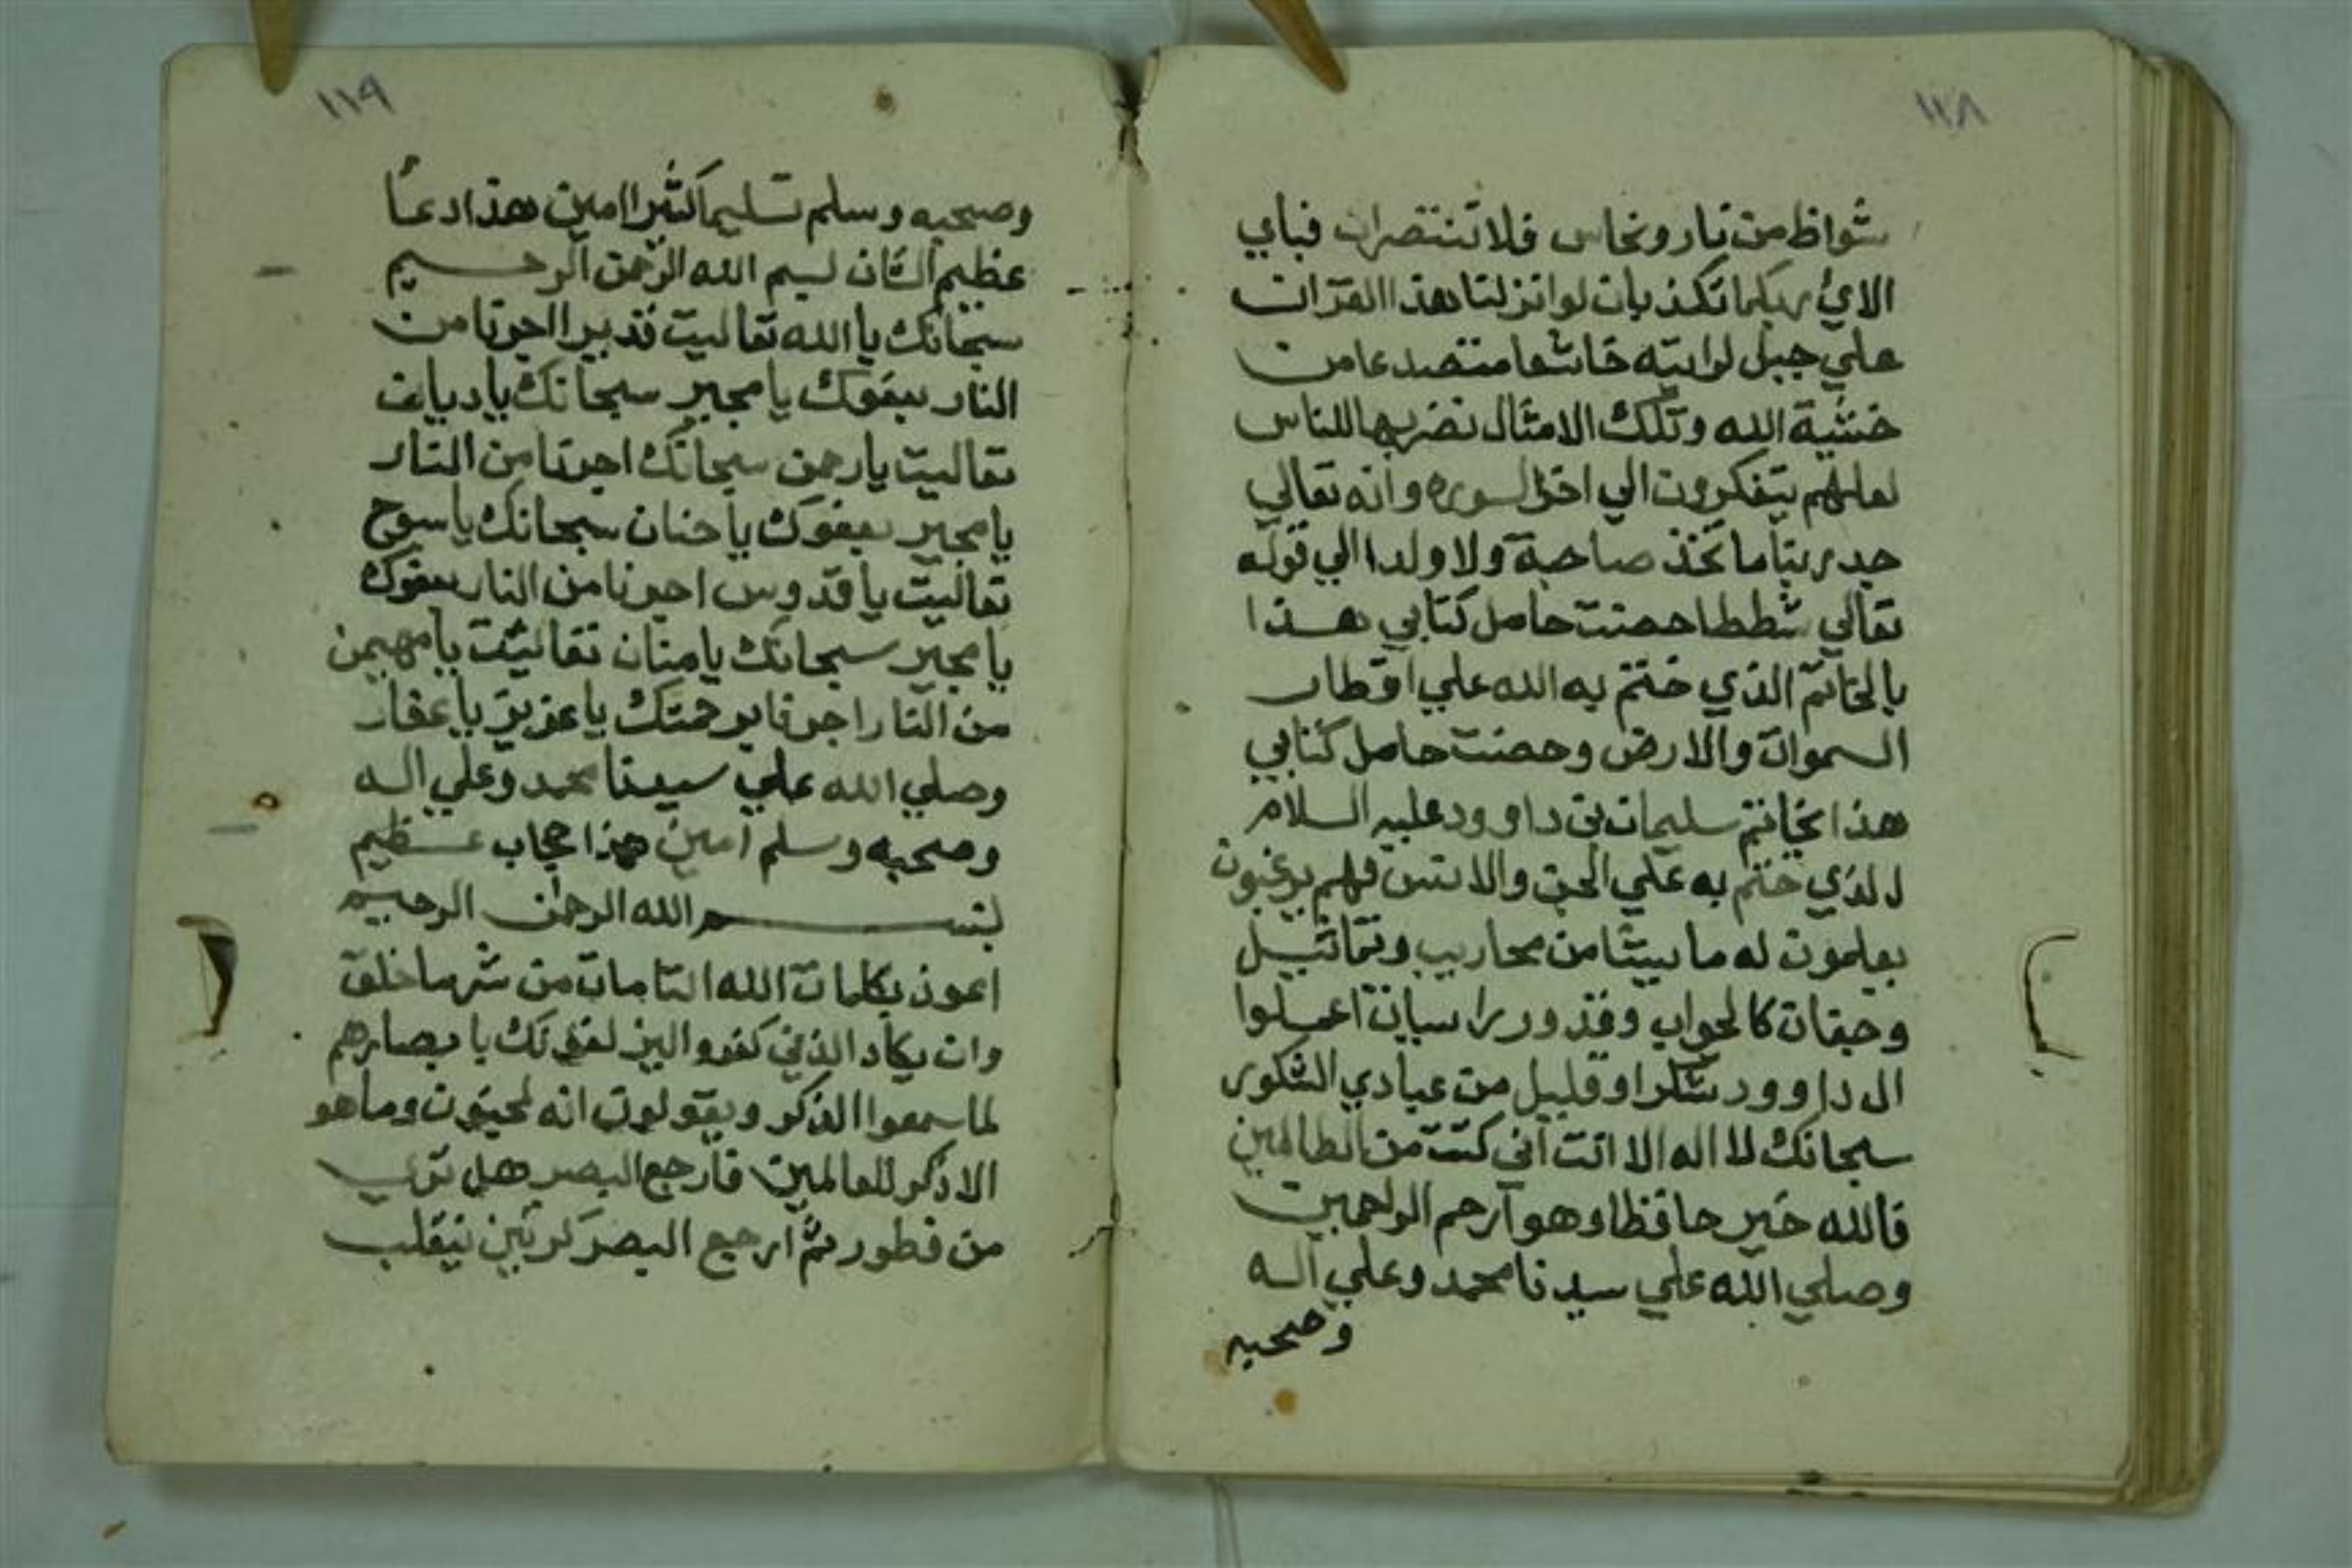 ١١٨
شواظ من نار ونحاس فلا تنتصران فباي
الاي ربكما تكذبان لو انزلنا هذا القران
علي جبل لرايته خاشعا متصدعا من
خشية الله وتلك الامثال نضربها للناس
لعلهم يتفكرون الي اخر السوره وانه تعالي
جد ربنا ما تخذ صاحبة ولا ولدا الي قوله
تعالي شططا حصنت حامل كتابي هذا
بالخاتم الذي ختم به الله علي اقطار
السموات والارض وحصنت حامل كتابي
هذا بخاتم سليمان بن داوود عليه السلام
لذي ختم به علي الجن والانس فهم يرغبون
يعلمون له ما يشا من محاريب وتماثيل
وجفان كالجواب وقدور راسيات اعملوا
ال داوود شكرا وقليل من عبادي الشكور
سبحانك لا اله الا انت اني كنت من الظالمين
فالله خير حافظا وهو ارحم الراحمين
وصلي الله علي سيدنا محمد وعلي اله
وصحبه
١١٩
وصحبه وسلم تسليما كثيرا امين هذا دعا
عظيم الشان بسم الله الرحمن الرحيم
سبحانك يا الله تعاليت قدير اجرنا من
النار بعفوك يا مجير سبحانك يا ديان
تعاليت يا رحمن سبحانك اجرنا من النار
يا مجير بعفوك يا حنان سبحانك يا سبوح
تعاليت يا قدوس اجرنا من النار بعفوك
يا مجير سبحانك يا منان تعاليت يا مهيمن
من النار اجرنا برحمتك يا عزيز يا غفار
وصلي الله علي سيدنا محمد وعلي اله
وصحبه وسلم امين هذا حجاب عظيم
بسم الله الرحمن الرحيم
اعوذ بكلمات الله التامات من شر ما خلق
وان يكاد الذين كفروا ليزلقونك بابصارهم
لما سمعوا الذكر ويقولون انه لمجنون وما هو
الا ذكر للعالمين فارجع البصر هل تري
من فطور ثم ارجع البصر كرتين ينقلب